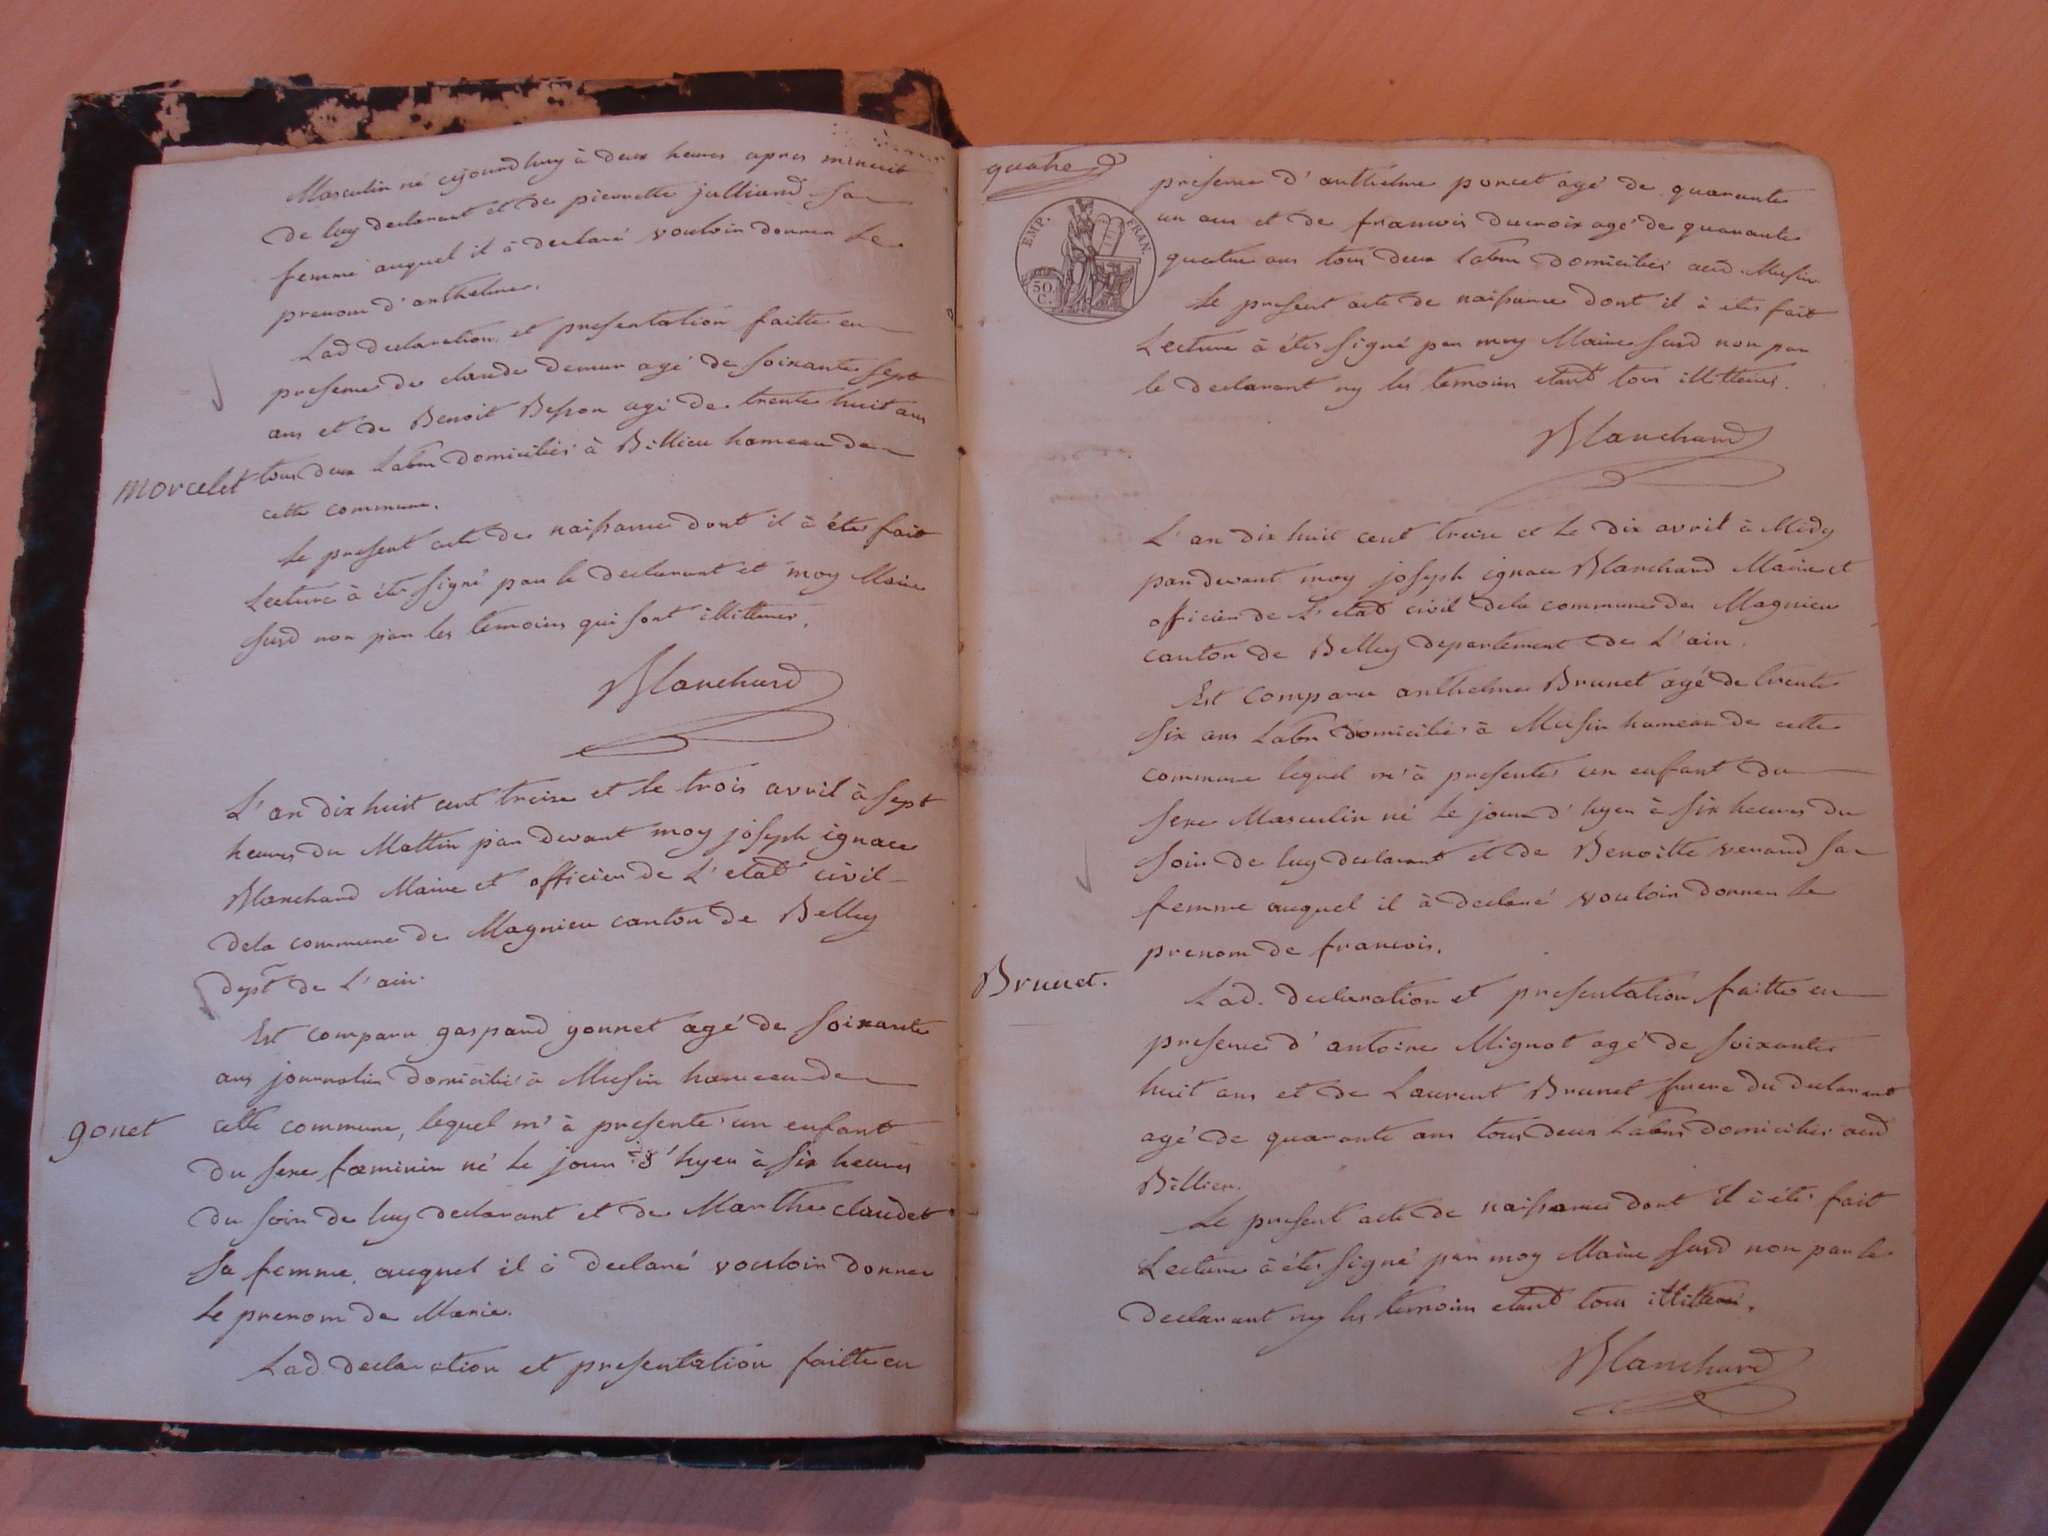 Masculin né cejourdhuy à deux heures apres minuit
de luy declarant et de pierrette julliand sa
femme auquel il à declaré vouloir donner le
prenom d'anthelme.
Lad declaration et presentation faitte en
presence de claude demur agé de soixante sept
ans et de Benoit Besson agé de trente huit ans
tous deux Labrs domiciliés à Billieu hameau de
morcelet
cette commune.
Le present acte de naissance dont il à étés fait
Lecture à étés signé par le declarant et moy Maire
susd non par les temoins qui sont illitterés.
Blanchard
L'an dix huit cent treise et le trois avril à sept
heures du Mattin par devant moy joseph ignace
Blanchard Maire et officier de L'etat civil
dela commune de Magnieu canton de Belley
dept de L'ain.
Est comparu gaspard gonnet agé de soixante
ans journalier domicilié à Musin hameau de
cette commune, lequel m'à presenté un enfant
gonet
du sexe foeminin né le jour d'hyer à six heures
du soir de luy declarant et de Marthe claudet
sa femme, auquel il à declaré vouloir donner
le prenom de Marie.
Lad declaration et presentation faitte en
quatre
EMP. FRAN.
50. C.
presence d'anthelme porcet agé de quarante
un ans et de francois ducroix agé de quarante
quatre ans tous deux Labrs domiciliés aud. Musin
Le present acte de naissance dont il à étés fait
Lecture à étés signé par moy Maire susd non par
le declarant ny les temoins etant tous illitterés.
Blanchard
L'an dix huit cent treise et le dix avril à Midy
par devant moy joseph ignace Blanchard Maire et
officier de L'etat civil dela commune de Magnieu
canton de Belley departement de L'ain.
Est comparu anthelme Brunet agé de trente
six ans Labr domicilié à Musin hameau de cette
commune lequel m'à presentés un enfant du
sexe Masculin né le jour d'hyer à six heures du
soir de luy declarant et de Benoitte venand sa
femme auquel il à declaré vouloir donner le
prenom de francois.
Brunet.
Lad. declaration et presentation faitte en
presence d'antoine Mignot agé de soixante
huit ans et de Laurent Brunet frere du declarant
agé de quarante ans tous deux Labrs domiciliés aud
Billieu.
Le present acte de naissance dont il à étés fait
Lecture à étés signé par moy Maire susd non par le
declarant ny les temoins etant tous illitterés.
Blanchard